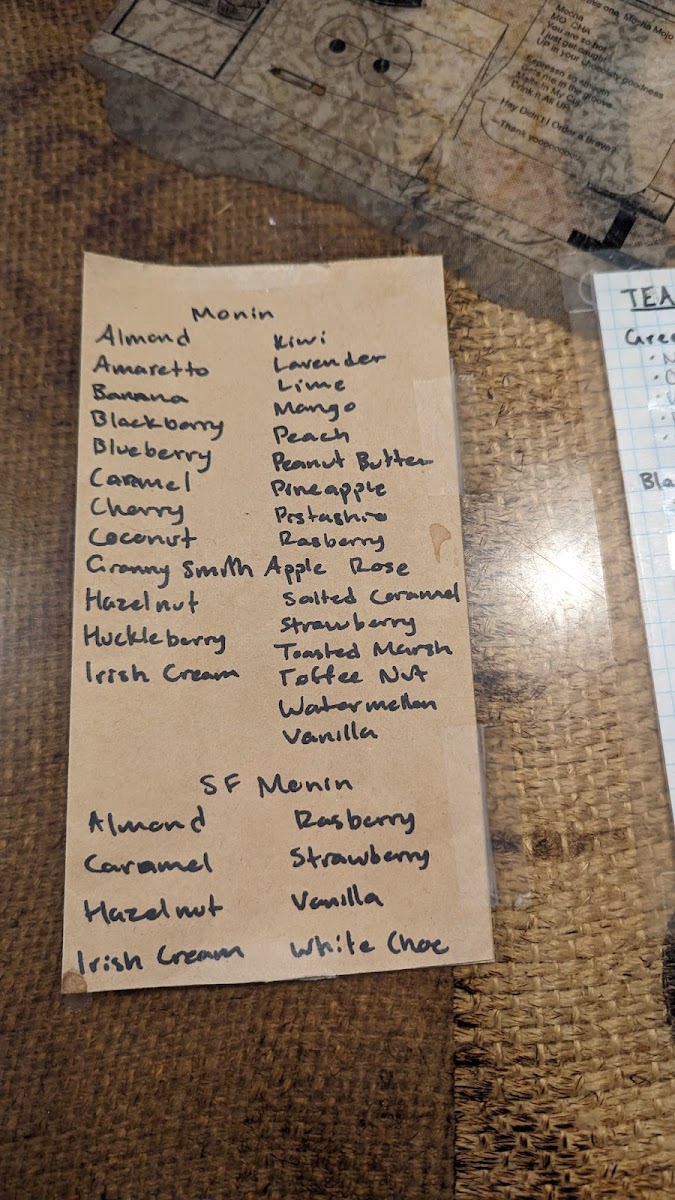 this one, Mocha Mojo
Mocha
MO CHA
You are so hot
I just get caught
UP in your chocolate goodness
Espresso so smooth
Melt In My Cup
Drink It All UP
Hey Didn't I Order a Breve?
Monin
Almond
Amaretto
Banana
Blackberry
Blueberry
Caramel
Cherry
Coconut
Granny Smith Apple
Hazelnut
Huckleberry
Irish Cream
Kiwi
Lavender
Lime
Mango
Peach
Peanut Butter
Pineapple
Pistashio
Rasberry
Rose
Salted Caramel
Strawberry
Toasted Marsh
Toffee Nut
Watermellon
Vanilla
SF Monin
Almond
Caramel
Hazelnut
Irish Cream
Rasberry
Strawberry
Vanilla
White Choc
TEA
Gree
Bla